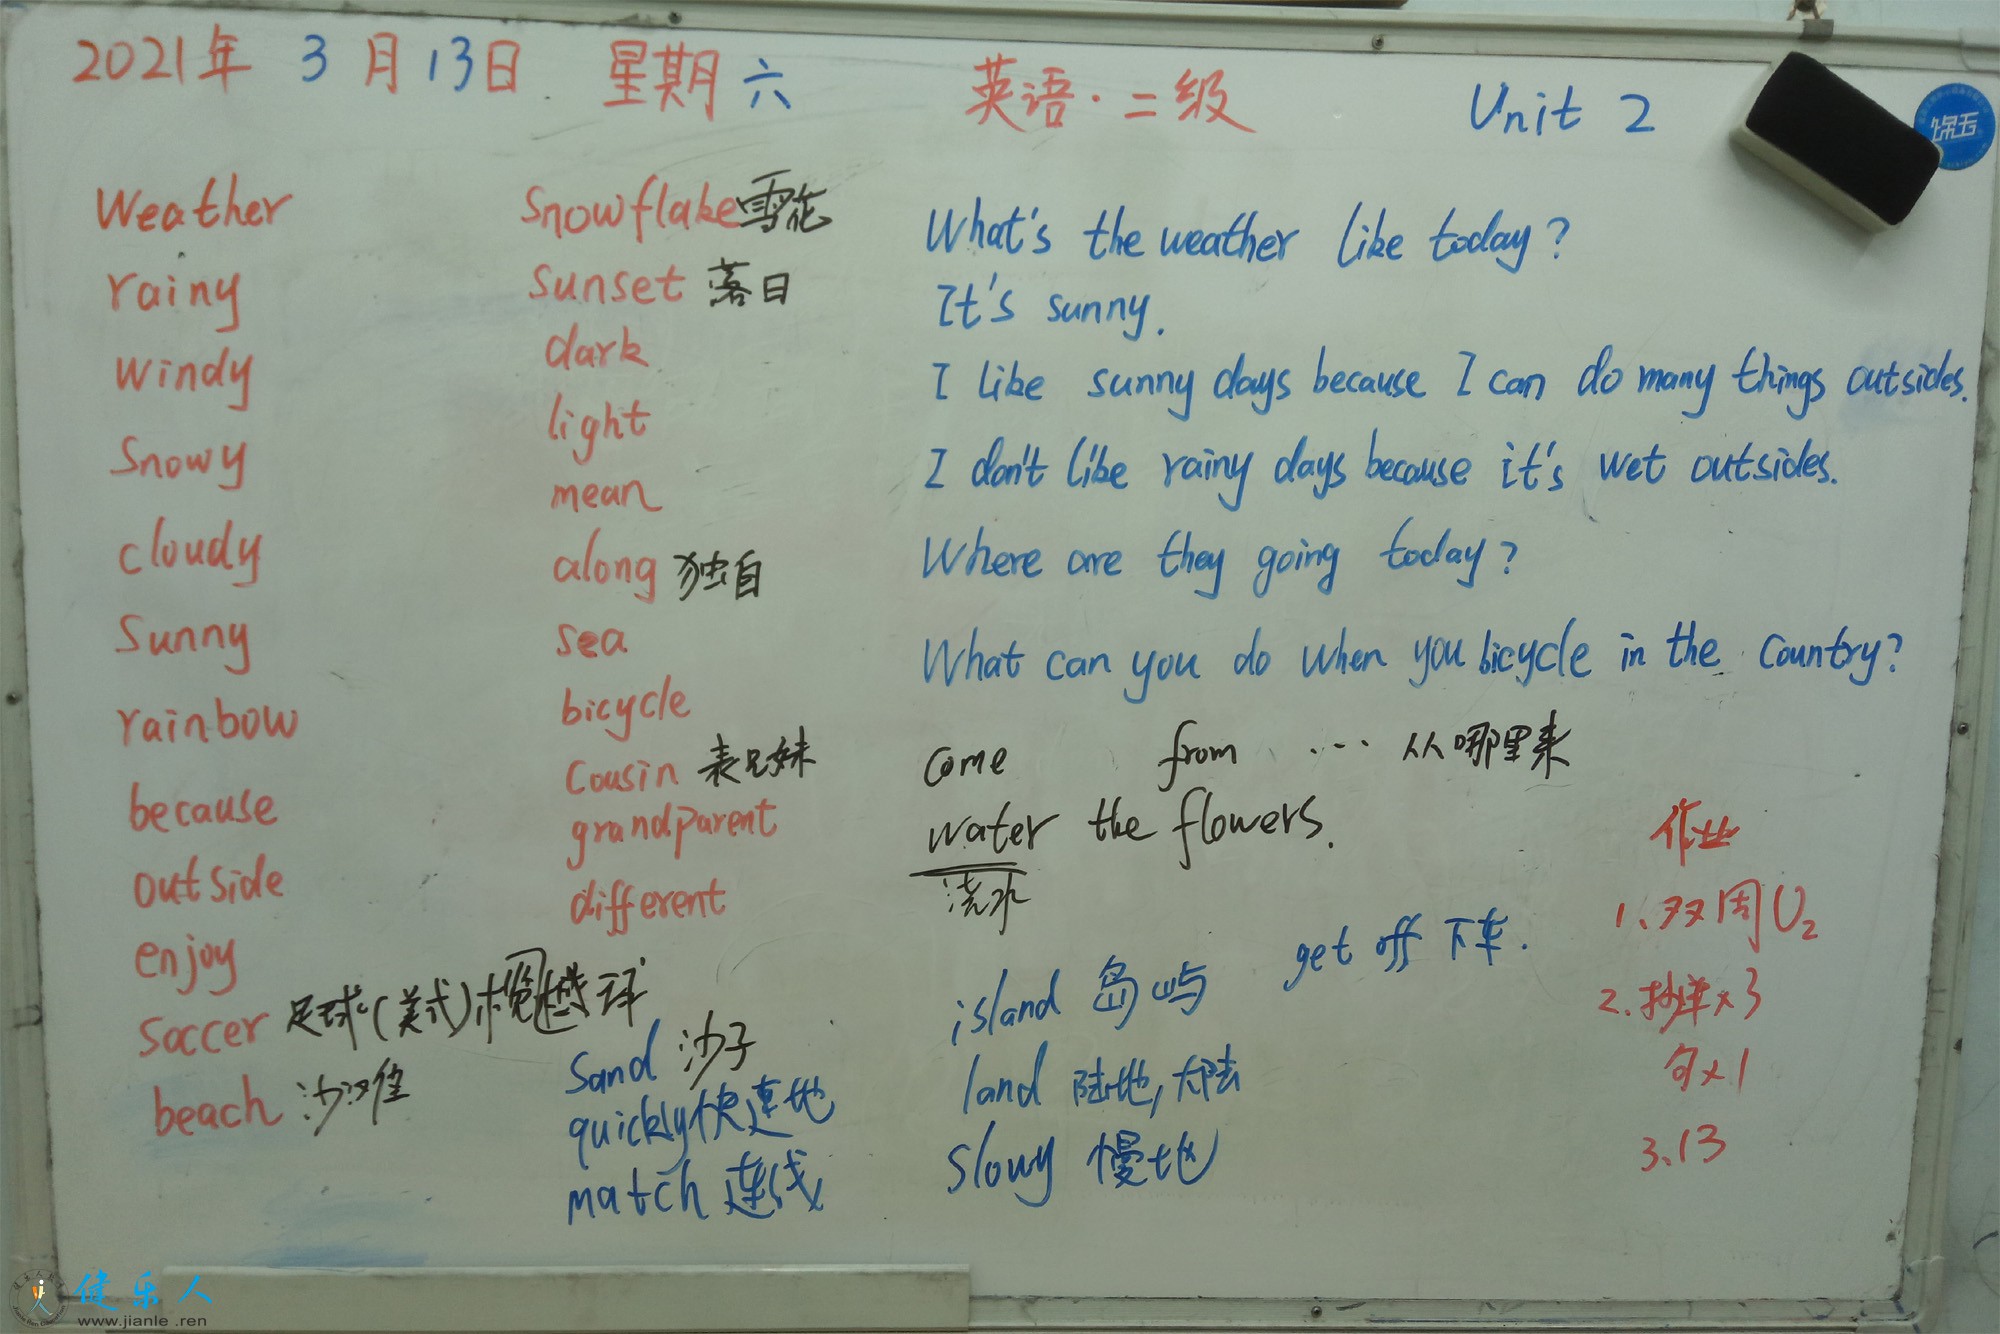 2021年 3月13日 星期六 英语·二级 Unit 2
Weather
rainy
windy
Snowy
cloudy
Sunny
rainbow
because
outside
enjoy
Soccer 足球(美式)橄榄球
beach 沙滩
Snowflake 雪花
sunset 落日
dark
light
mean
along 独自
sea
bicycle
cousin 表兄妹
grandparent
different
Sand 沙子
quickly 快速地
match 连线
What's the weather like today?
It's sunny.
I like sunny days because I can do many things outsides.
I don't like rainy days because it's wet outsides.
Where are they going today?
What can you do when you bicycle in the country?
come from ... 从哪里来
water the flowers.
浇水
get off 下车.
island 岛屿
land 陆地,大陆
slowy 慢地
作业
1、双周U2
2.抄单×3
句×1
3、13
健乐人
www.jianle.ren